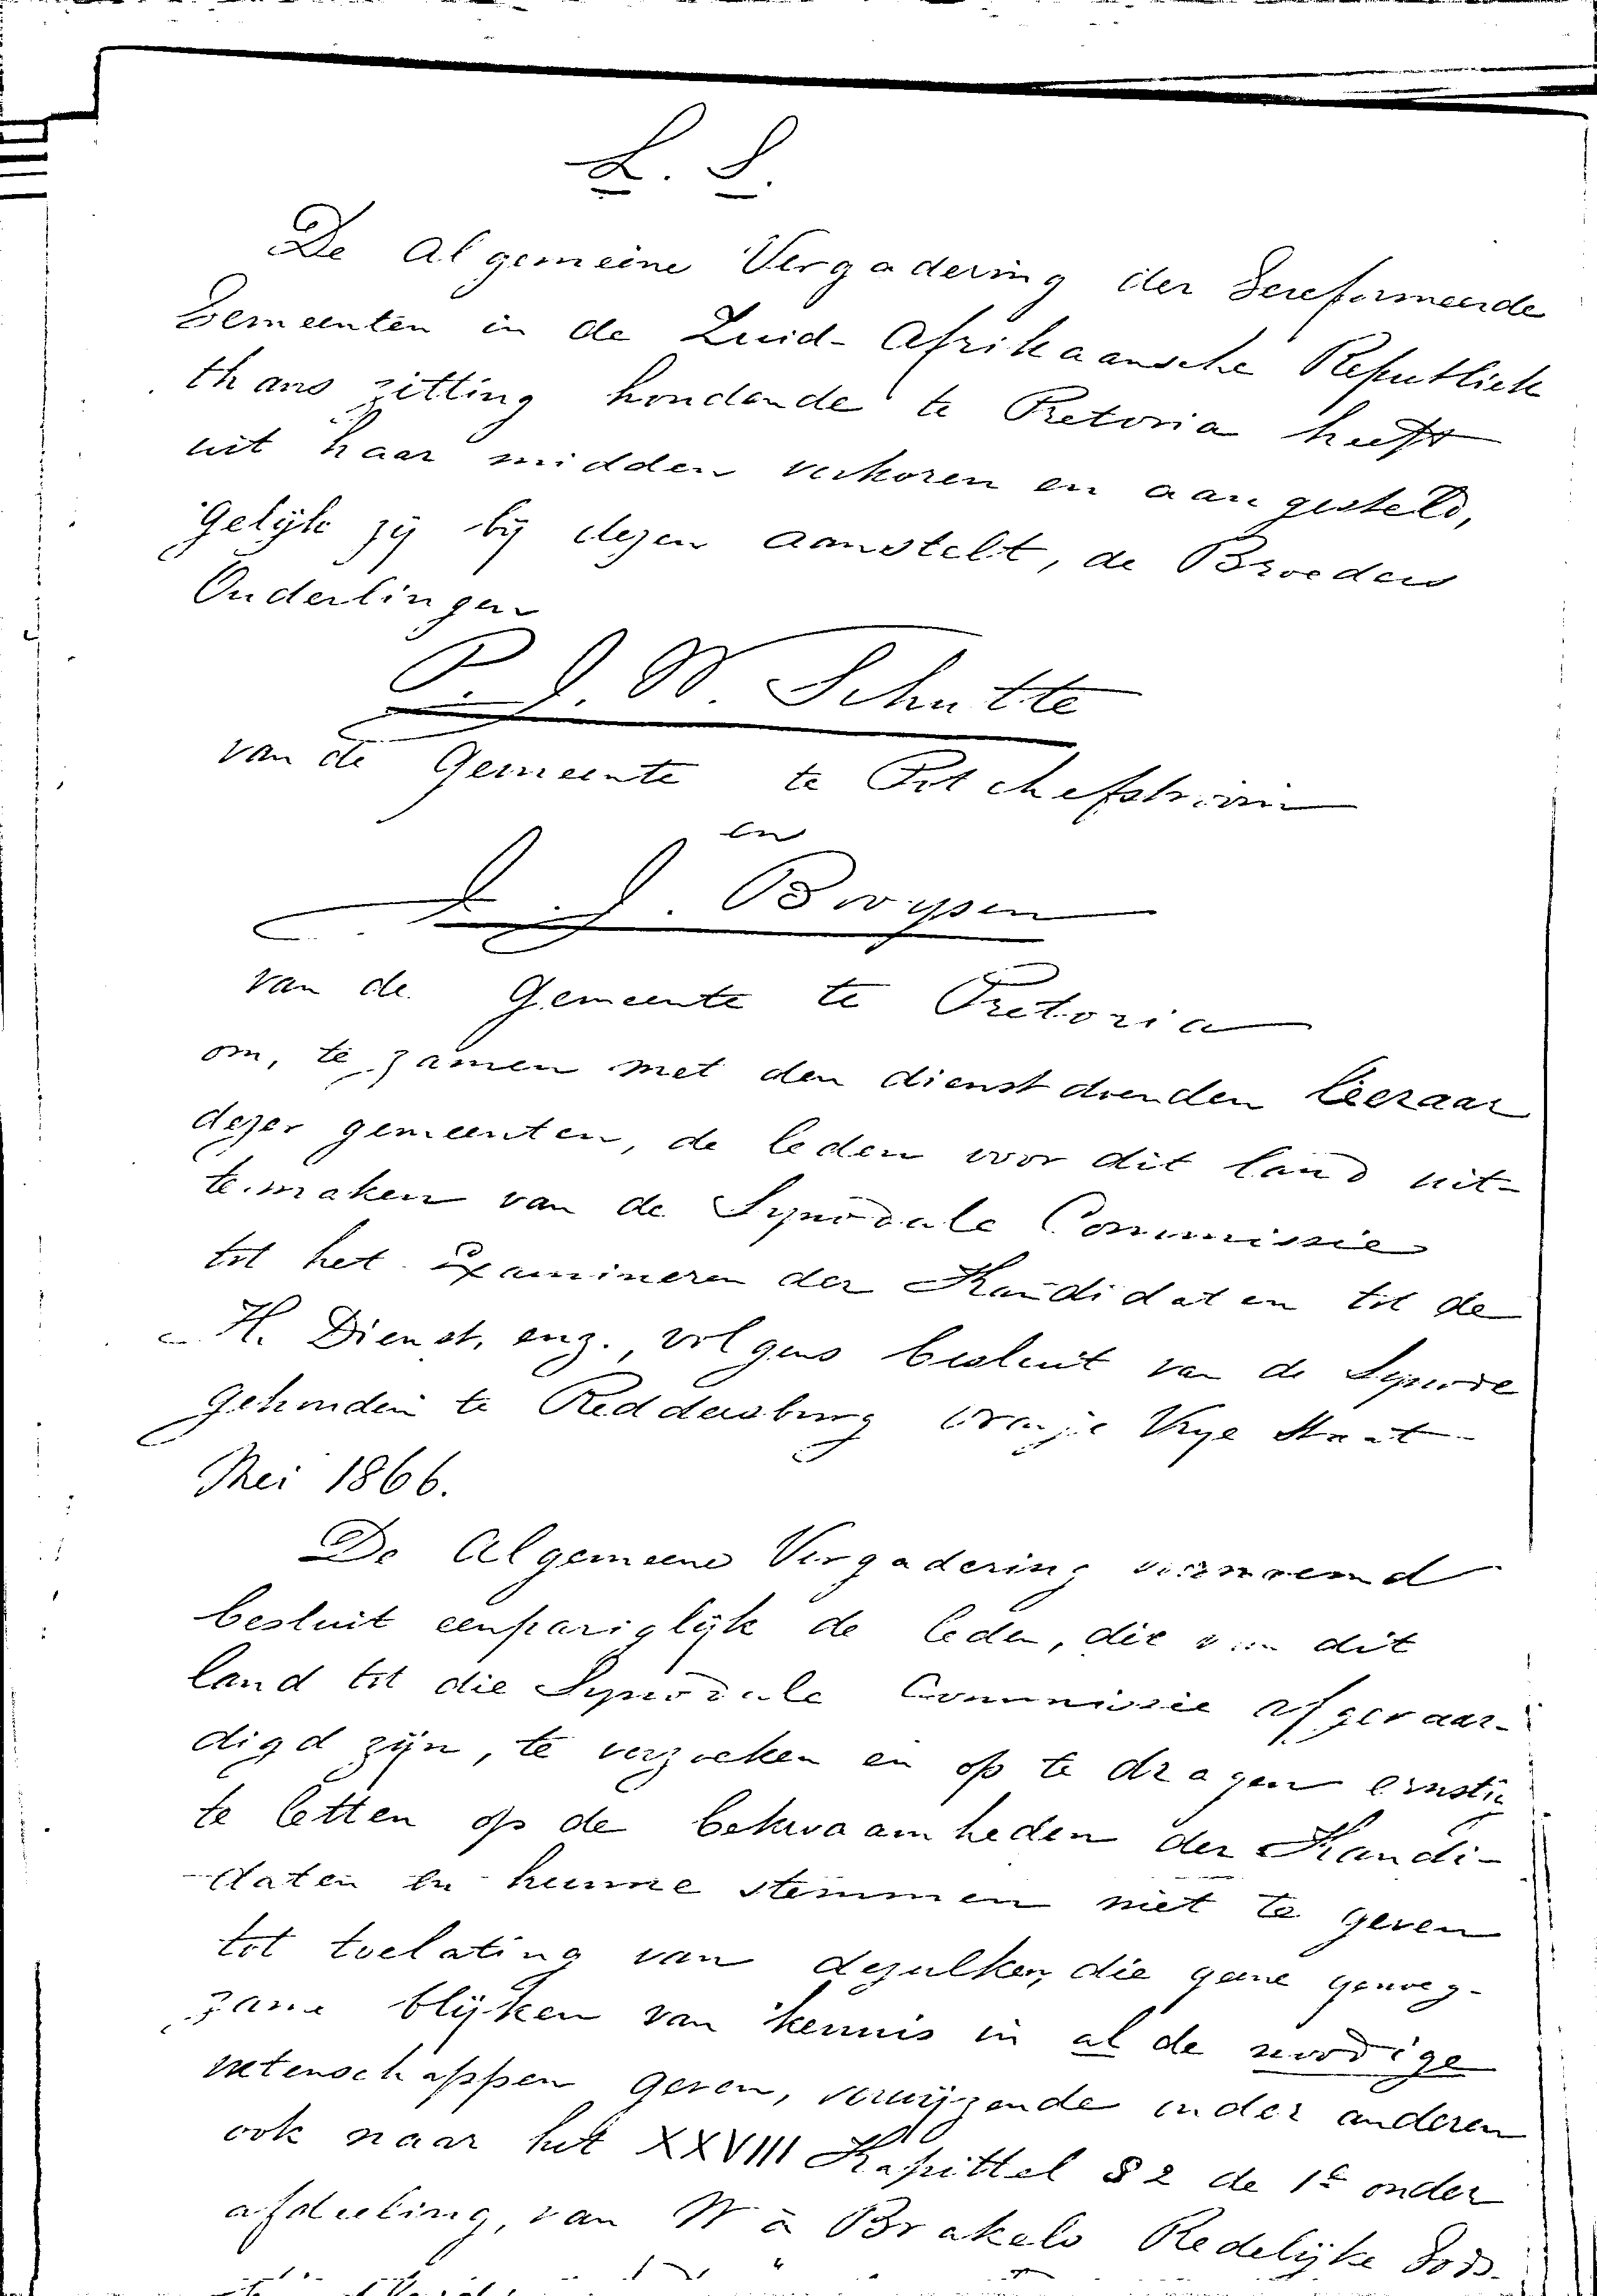 L. S.
De Algemeine Vergadering der Gereformeerde
Gemeenten in de Zuid-Afrikaansche Republiek
thans zitting houdende te Pretoria heeft
uit haar midden verkoren en aangesteld,
Gelijk zij bij dezen aanstelt, de Broeders
Ouderlingen
P. J. W. Schutte
van de Gemeente te Potchefstroom
en
J. J. Booysen
van de Gemeente te Pretoria
om, te zamen met den dienstdoenden leeraar
dezer gemeenten, de leden voor dit land uit-
temaken van de Synodale Commissie
tot het Examineren der Kandidaten tot de
H. Dienst, enz., volgens besluit van de Synode
gehouden te Reddersburg Oranje Vrye Staat
Mei 1866.
De Algemeene Vergadering voornoemd
besluit eenpariglijk de leden, die van dit
land tot die Synodale Commissie afgevaar-
digd zijn, te verzoeken en op te dragen ernstig
te letten op de bekwaamheden der Kandi-
daten en hunne stemmen niet te geven
tot toelating van dezulken, die geene genoeg-
zame blijken van kennis in al de noodige
wetenschappen geven, verwijzende onder anderen
ook naar het XXVIII Kapittel § 2 de 1e onder
afdeeling, van W à Brakels Redelijke Gods-